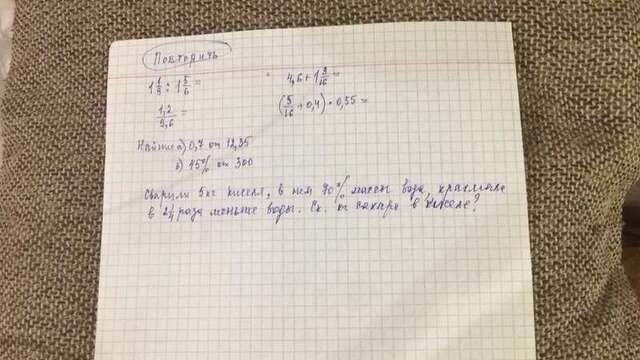 Повторить
1 1/5 : 1 5/6 =
4,6 + 1 3/16 =
1,2/3,6 =
(5/16 + 0,4) · 0,55 =
Найти а) 0,7 от 12,35
б) 45% от 300
Сварили 5 кг киселя, в нем 70% массы вода, крахмала
в 2 1/4 раза меньше воды. Ск. кг сахара в киселе?